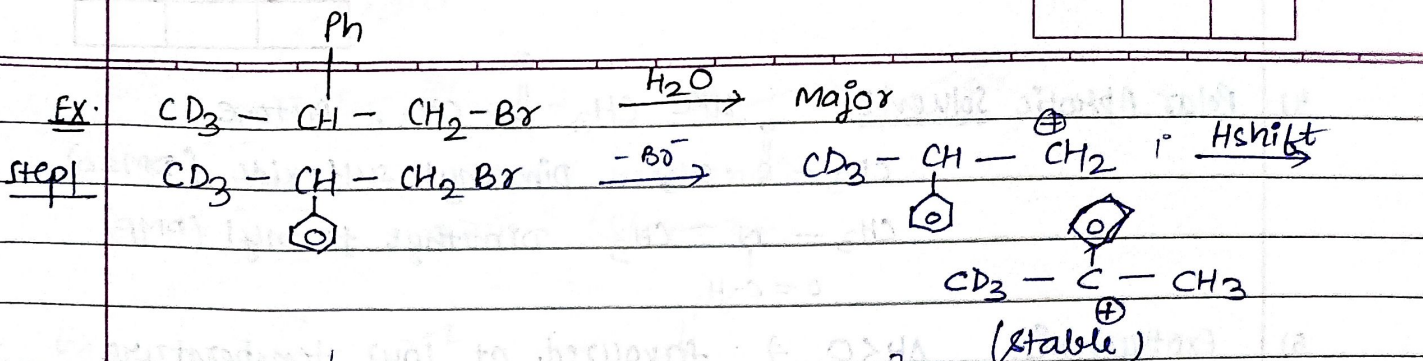 Ph
Ex. CD3 — CH — CH2-Br H2O → Major
Step1 CD3 — CH — CH2Br -Br⁻ → CD3 — CH — CH2 ⊕ ; H shift →
CD3 — C — CH3
⊕
(Stable)